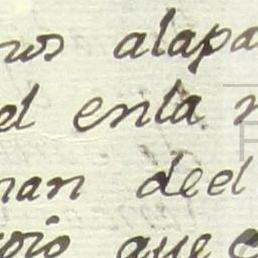 nos alapa
el enla
nan deel
que